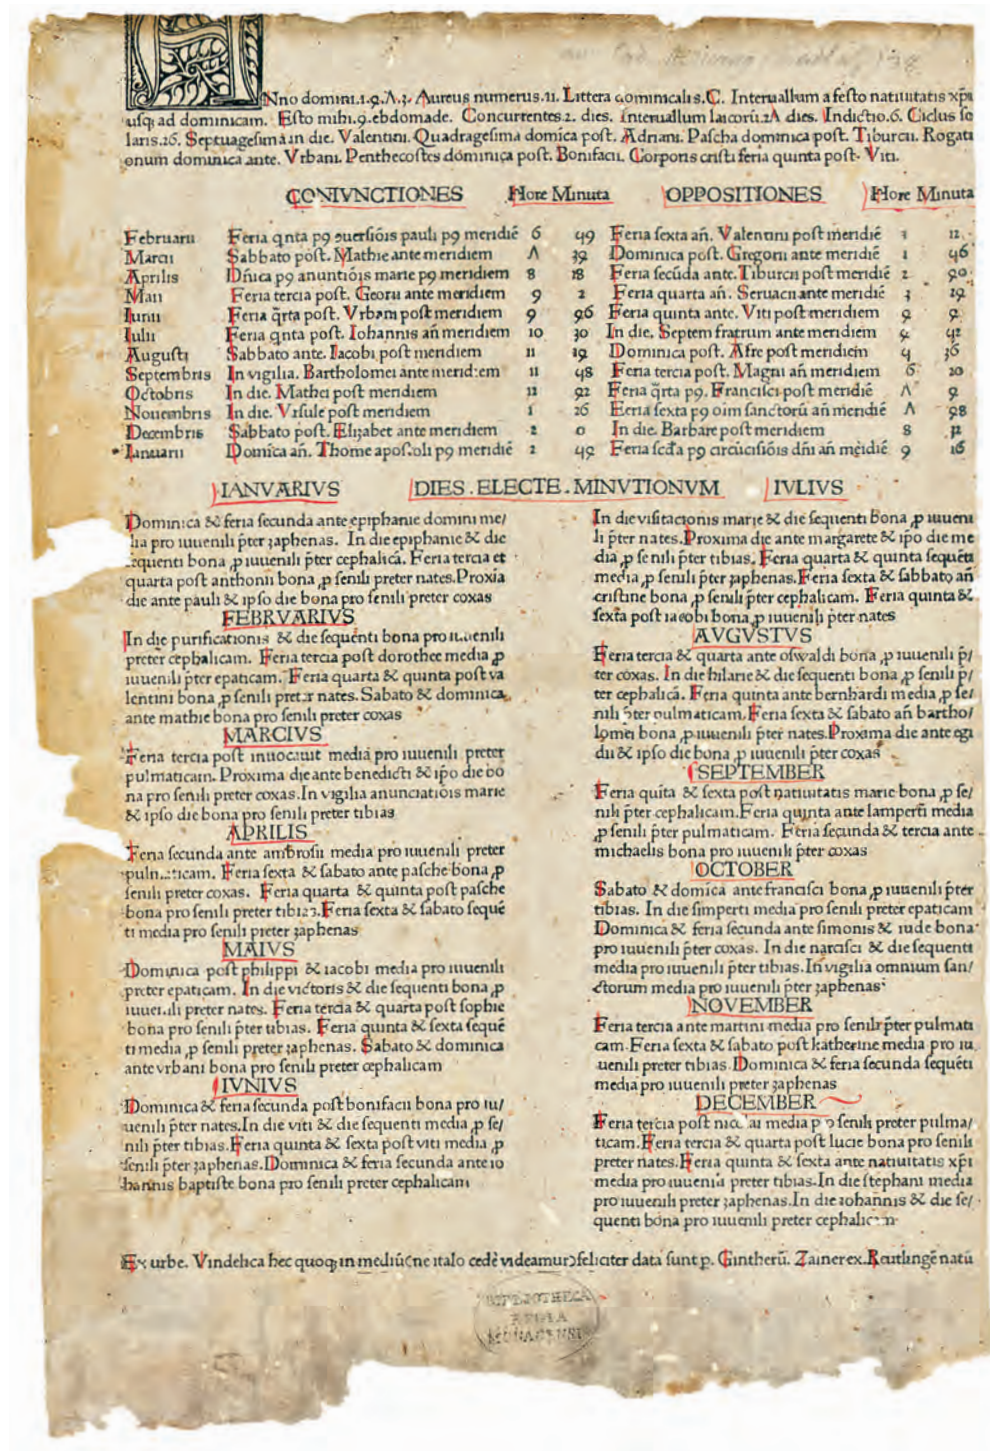 ANno domini.1.9.Λ.3. Aureus numerus.11. Littera dominicalis.C. Interuallum a festo natiuitatis xp̄i
usq; ad dominicam. Esto mihi.9.ebdomade. Concurrentes.2. dies. Interuallum laicorū.2Λ dies. Indictio.6. Ciclus so
laris.26. Septuagesima in die. Valentini. Quadragesima domica post. Adriani. Pascha dominica post. Tiburcii. Rogati
onum dominica ante. Vrbani. Penthecostes dominica post. Bonifacii. Corporis cristi feria quinta post. Viti.
CONIVNCTIONES Hore Minuta OPPOSITIONES Hore Minuta
Februarii Feria qnta p9 ɔuersiōis pauli p9 meridiē 6 49 Feria sexta an̄. Valentini post meridiē 3 12
Marcii Sabbato post. Mathie ante meridiem Λ 39 Dominica post. Gregorii ante meridiē 1 46
Aprilis Dn̄ica p9 anuntiōis marie p9 meridiem 8 18 Feria secūda ante. Tiburcii post meridiē 2 90
Maii Feria tercia post. Georii ante meridiem 9 2 Feria quarta an̄. Seruacii ante meridiē 3 29
Iunii Feria q̄rta post. Vrbani post meridiem 9 96 Feria quinta ante. Viti post meridiem 9 9
Iulii Feria qnta post. Iohannis an̄ meridiem 10 30 In die. Septem fratrum ante meridiem 4 42
Augusti Sabbato ante. Iacobi post meridiem 11 19 Dominica post. Afre post meridiem 4 36
Septembris In vigilia. Bartholomei ante meridiem 11 48 Feria tercia post. Magni an̄ meridiem 6 20
Octobris In die. Mathei post meridiem 12 92 Feria q̄rta p9. Francisci post meridiē Λ 9
Nouembris In die. Vrsule post meridiem 1 26 Feria sexta p9 oim sanctorū an̄ meridiē Λ 98
Decembris Sabbato post. Elizabet ante meridiem 2 0 In die. Barbare post meridiem 8 32
Ianuarii Domica an̄. Thome apostoli p9 meridiē 2 49 Feria scd̄a p9 circūcisiōis dn̄i an̄ meridiē 9 16
IANVARIVS DIES.ELECTE.MINVTIONVM IVLIVS
Dominica & feria secunda ante epiphanie domini me/
dia pro iuuenili p̄ter zaphenas. In die epiphanie & die
sequenti bona ꝓ iuuenili p̄ter cephalicā. Feria tercia et
quarta post anthonii bona ꝓ senili preter nates. Proxia
die ante pauli & ipso die bona pro senili preter coxas
FEBRVARIVS
In die purificationis & die sequenti bona pro iuuenili
preter cephalicam. Feria tercia post dorothee media ꝓ
iuuenili p̄ter epaticam. Feria quarta & quinta post va
lentini bona ꝓ senili preter nates. Sabato & dominica
ante mathie bona pro senili preter coxas
MARCIVS
Feria tercia post inuocauit media pro iuuenili preter
pulmaticam. Proxima die ante benedicti & ip̄o die bo
na pro senili preter coxas. In vigilia anunciatiōis marie
& ipso die bona pro senili preter tibias
APRILIS
Feria secunda ante ambrosii media pro iuuenili preter
pulmaticam. Feria sexta & sabato ante pasche bona ꝓ
senili preter coxas. Feria quarta & quinta post pasche
bona pro senili preter tibias. Feria sexta & sabato sequē
ti media pro senili preter zaphenas
MAIVS
Dominica post philippi & iacobi media pro iuuenili
preter epaticam. In die victoris & die sequenti bona ꝓ
iuuenili preter nates. Feria tercia & quarta post sophie
bona pro senili p̄ter tibias. Feria quinta & sexta sequē
ti media ꝓ senili preter zaphenas. Sabato & dominica
ante vrbani bona pro senili preter cephalicam
IVNIVS
Dominica & feria secunda post bonifacii bona pro iu/
uenili p̄ter nates. In die viti & die sequenti media ꝓ se/
nili p̄ter tibias. Feria quinta & sexta post viti media ꝓ
senili p̄ter zaphenas. Dominica & feria secunda ante io
hannis baptiste bona pro senili preter cephalicam
In die visitacionis marie & die sequenti bona ꝓ iuueni
li p̄ter nates. Proxima die ante margarete & ip̄o die me
dia ꝓ senili p̄ter tibias. Feria quarta & quinta sequēti
media ꝓ senili p̄ter zaphenas. Feria sexta & sabbato an̄
cristine bona ꝓ senili p̄ter cephalicam. Feria quinta &
sexta post iacobi bona ꝓ iuuenili p̄ter nates
AVGVSTVS
Feria tercia & quarta ante oswaldi bona ꝓ iuuenili p̄/
ter coxas. In die hilarie & die sequenti bona ꝓ senili p̄/
ter cephalicā. Feria quinta ante bernhardi media ꝓ se/
nili p̄ter pulmaticam. Feria sexta & sabato an̄ bartho/
lomei bona ꝓ iuuenili p̄ter nates. Proxima die ante egi
dii & ipso die bona ꝓ iuuenili p̄ter coxas
SEPTEMBER
Feria quīta & sexta post natiuitatis marie bona ꝓ se/
nili p̄ter cephalicam. Feria quinta ante lamperti media
ꝓ senili p̄ter pulmaticam. Feria secunda & tercia ante
michaelis bona pro iuuenili p̄ter coxas
OCTOBER
Sabato & domīca ante francisci bona ꝓ iuuenili p̄ter
tibias. In die simperti media pro senili preter epaticam
Dominica & feria secunda ante simonis & iude bona
pro iuuenili p̄ter coxas. In die narcisci & die sequenti
media pro iuuenili p̄ter tibias. In vigilia omnium san/
ctorum media pro iuuenili p̄ter zaphenas
NOVEMBER
Feria tercia ante martini media pro senili p̄ter pulmati
cam. Feria sexta & sabato post katherine media pro iu
uenili preter tibias. Dominica & feria secunda sequēti
media pro iuuenili preter zaphenas
DECEMBER
Feria tercia post nicolai media pro senili preter pulma/
ticam. Feria tercia & quarta post lucie bona pro senili
preter nates. Feria quinta & sexta ante natiuitatis xp̄i
media pro iuuenili preter tibias. In die stephani media
pro iuuenili preter zaphenas. In die iohannis & die se/
quenti bona pro iuuenili preter cephalicam
Ex urbe. Vindelica hec quoq; in mediū(ne italo cedē videamur)feliciter data sunt p. Gintherū. Zainer ex. Reutlingē natū
BIBLIOTHECA
REGIA
MONACENSIS